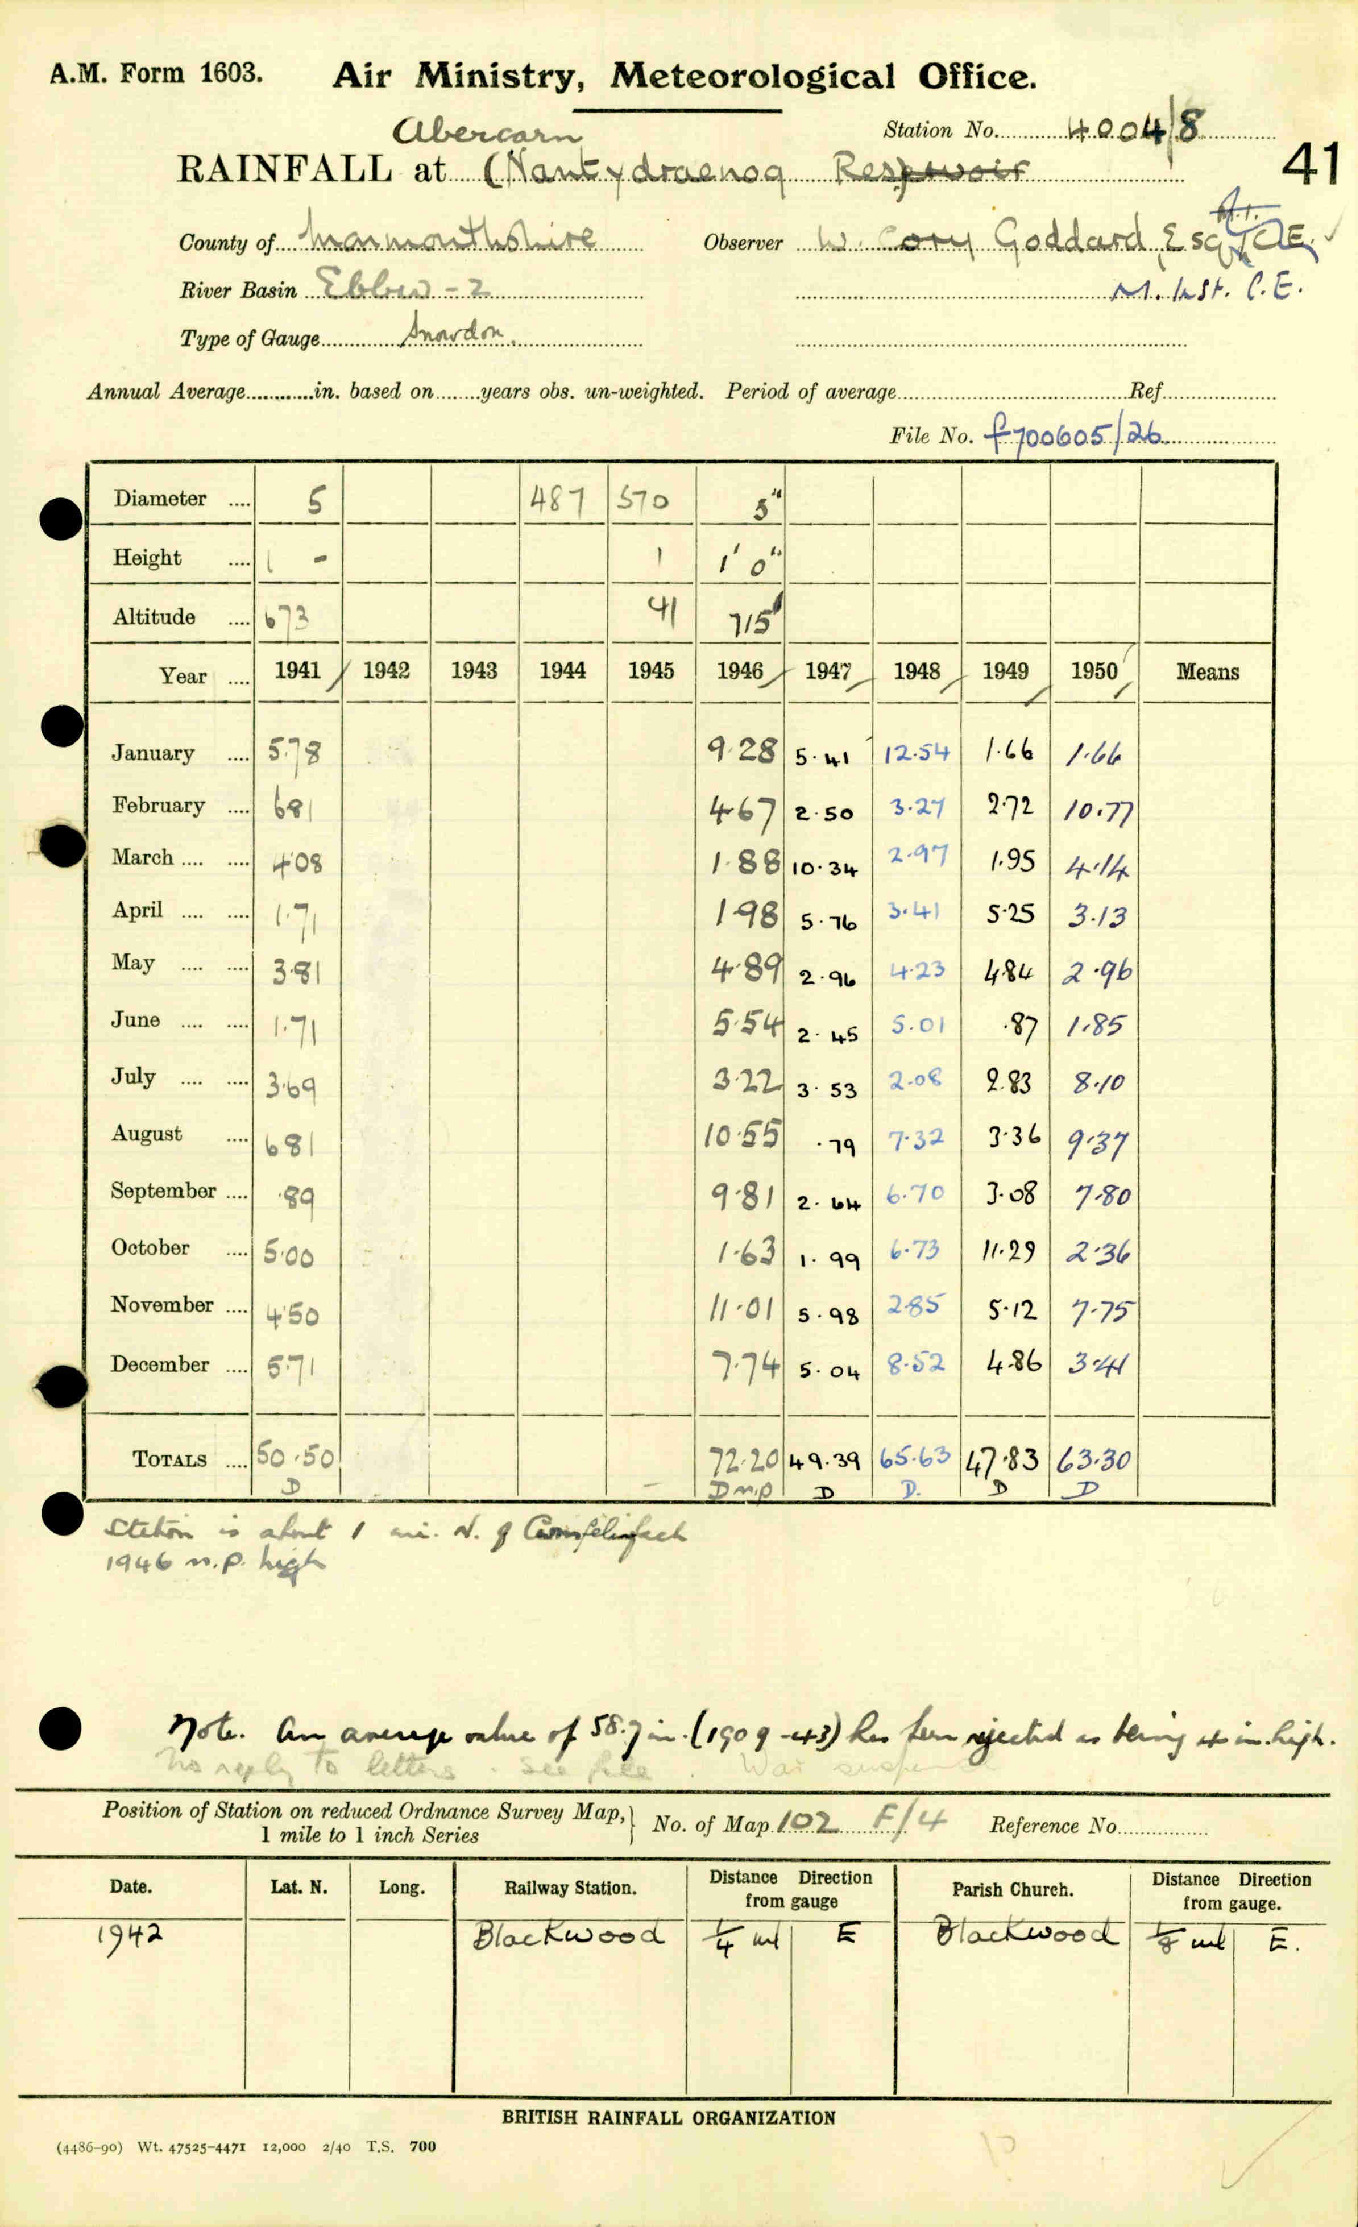 A.M. Form 1603. Air Ministry, Meteorological Office.
Abercarn
Station No. 4004/8
RAINFALL at (Nantydraenog Reservoir
41
County of Monmouthshire Observer W. Cory Goddard, Esq.,
River Basin Ebbw - 2 M. Inst. C.E.
Type of Gauge Snowdon.
Annual Average in. based on years obs. un-weighted. Period of average Ref
File No. f700605/26
Diameter 5 487 570 5"
Height 1 - 1 1' 0"
Altitude 673 41 715'
Year 1941 1942 1943 1944 1945 1946 1947 1948 1949 1950 Means
January 5.78 9.28 5.41 12.54 1.66 1.66
February 6.81 4.67 2.50 3.27 2.72 10.77
March 4.08 1.88 10.34 2.97 1.95 4.14
April 1.71 1.98 5.76 3.41 5.25 3.13
May 3.81 4.89 2.96 4.23 4.84 2.96
June 1.71 5.54 2.45 5.01 .87 1.85
July 3.69 3.22 3.53 2.08 2.83 8.10
August 6.81 10.55 .79 7.32 3.36 9.37
September .89 9.81 2.64 6.70 3.08 7.80
October 5.00 1.63 1.99 6.73 11.29 2.36
November 4.50 11.01 5.98 2.85 5.12 7.75
December 5.71 7.74 5.04 8.52 4.86 3.41
TOTALS 50.50 72.20 49.39 65.63 47.83 63.30
D D n.p D D. D D
Station is about 1 mi. N. of Cwmfelinfach
1946 n.p. high
Note. An average value of 58.7 in. (1909-43) has been rejected as being 4 in. high.
No reply to letters. See file. War
Position of Station on reduced Ordnance Survey Map,
1 mile to 1 inch Series
No. of Map 102 F/4 Reference No.
Date. Lat. N. Long. Railway Station. Distance Direction from gauge Parish Church. Distance Direction from gauge.
1942 Blackwood 1/4 ml E Blackwood 1/8 ml E.
BRITISH RAINFALL ORGANIZATION
(4486-90) Wt. 47525-4471 12,000 2/40 T.S. 700